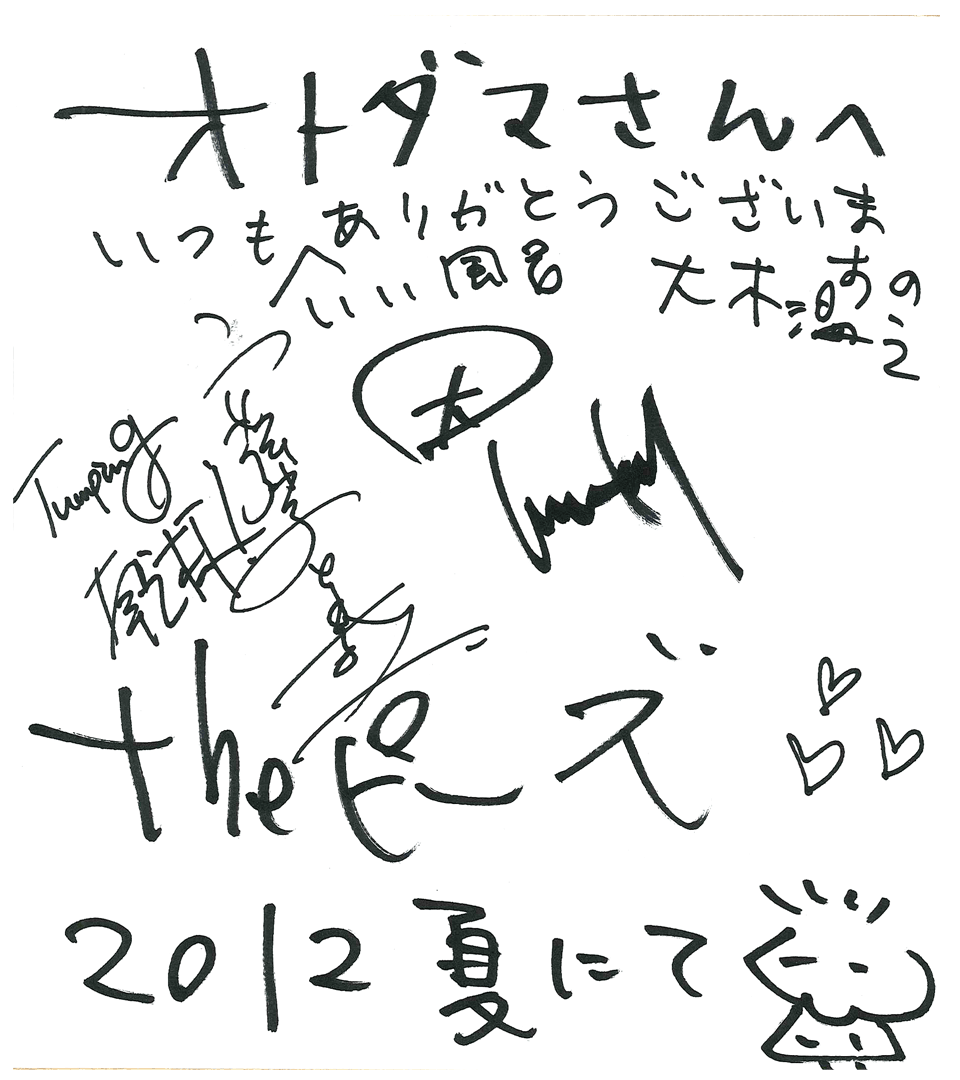 オトダマさんへ
いつもありがとうございます
いい風呂
大木温之
Jumping
the ピーズ
2012 夏にて